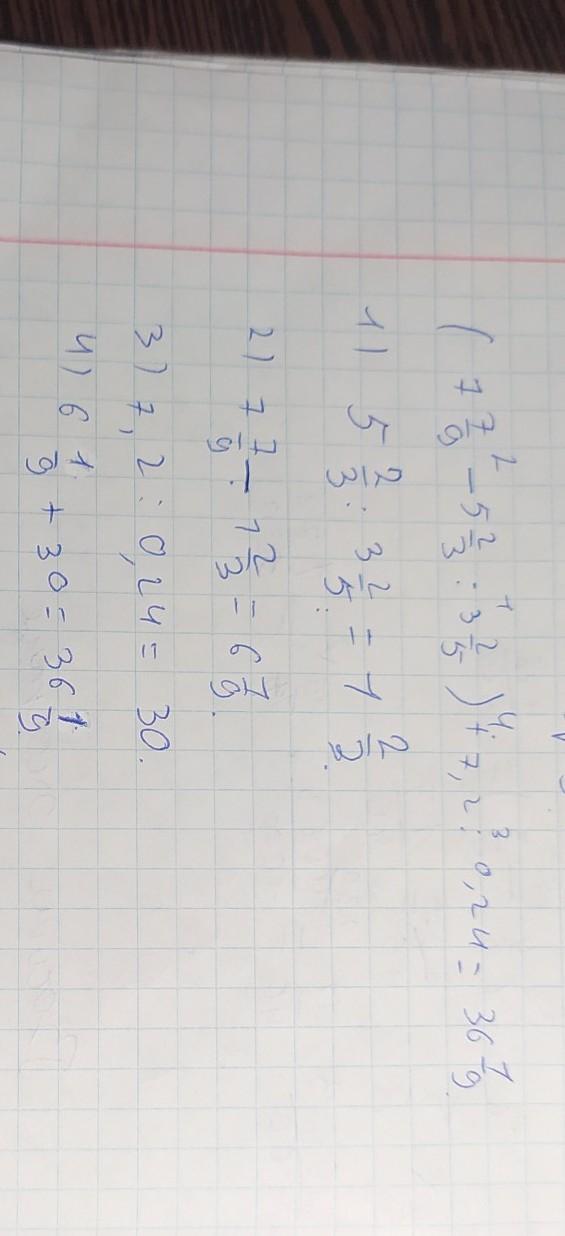 (7 7/9 - 5 2/3 : 3 2/5) + 7,2 : 0,24 = 36 1/9
1) 5 2/3 : 3 2/5 = 1 2/3.
2) 7 7/9 - 1 2/3 = 6 1/9.
3) 7,2 : 0,24 = 30.
4) 6 1/9 + 30 = 36 1/9.